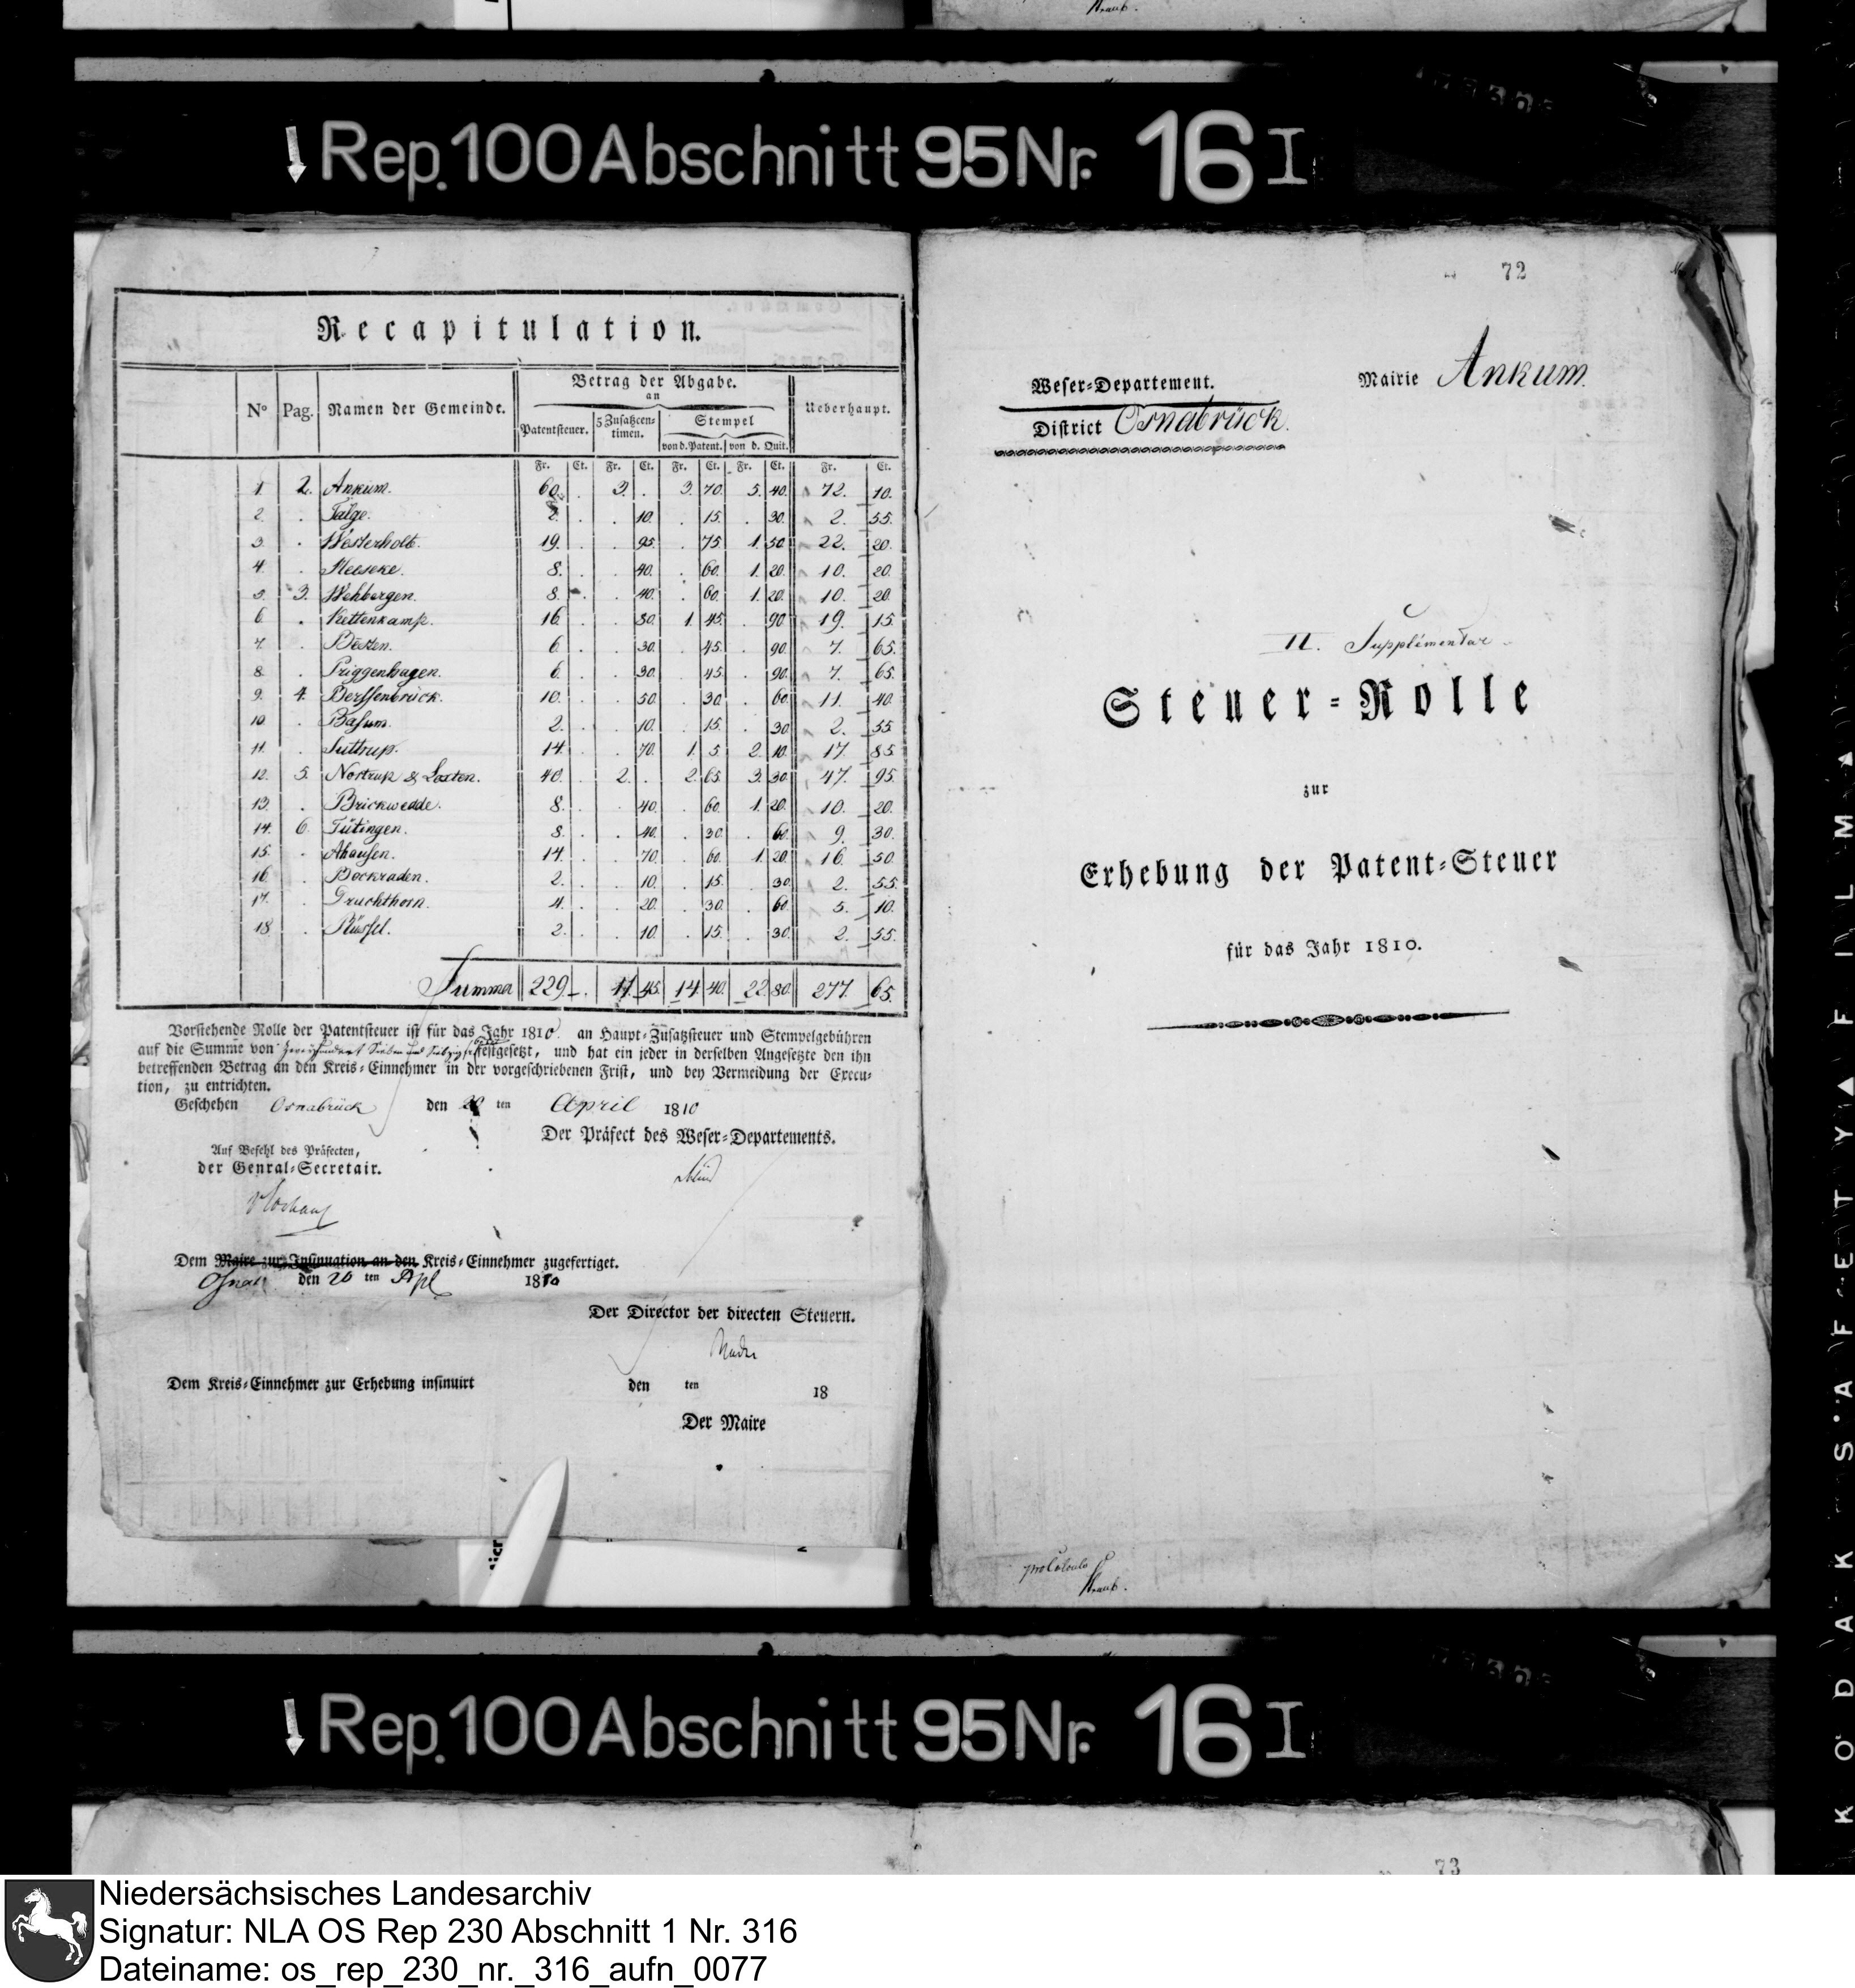 Kraub.
↓Rep.100 Abschnitt 95 Nr. 16 I
Recapitulation.
N° Pag. Namen der Gemeinde. Betrag der Abgabe. Ueberhaupt.
an
Patentsteuer. 5 Zusatzcentimen. Stempel
von d. Patent. von d. Quit.
Fr. Ct. Fr. Ct. Fr. Ct. Fr. Ct. Fr. Ct.
1. 2. Ankum. 60. . 3. . 3. 70. 5. 40. 72. 10.
2. . Talge. 2. . . 10. . 15. . 30. 2. 55.
3. . Westerholt. 19. . . 95. . 75. 1. 50. 22. 20.
4. . Heeseke. 8. . . 40. . 60. 1. 20. 10. 20.
5. 3. Wehbergen. 8. . . 40. . 60. 1. 20. 10. 20.
6. . Kettenkamp. 16. . . 80. 1. 45. . 90. 19. 15.
7. . Besten. 6. . . 30. . 45. . 90. 7. 65.
8. . Priggenhagen. 6. . . 30. . 45. . 90. 7. 65.
9. 4. Berssenbrück. 10. . . 50. . 30. . 60. 11. 40.
10. . Basum. 2. . . 10. . 15. . 30. 2. 55.
11. . Suttrup. 14. . . 70. 1. 5. 2. 10. 17. 85.
12. 5. Nortrup & Loxten. 40. . 2. . 2. 65. 3. 30. 47. 95.
13. . Brickwedde. 8. . . 40. . 60. 1. 20. 10. 20.
14. 6. Tütingen. 8. . . 40. . 30. . 60. 9. 30.
15. . Ahausen. 14. . . 70. . 60. 1. 20. 16. 50.
16. . Bockraden. 2. . . 10. . 15. . 30. 2. 55.
17. . Druchthorn. 4. . . 20. . 30. . 60. 5. 10.
18. . Rüssel. 2. . . 10. . 15. . 30. 2. 55.
Summa 229. . 11. 45. 14. 40. 22. 80. 277. 65.
Vorstehende Rolle der Patentsteuer ist für das Jahr 1810 an Haupt-Zusatzsteuer und Stempelgebühren
auf die Summe von Zweyhundert Sieben und Siebzig festgesetzt, und hat ein jeder in derselben Angesetzte den ihn
betreffenden Betrag an den Kreis-Einnehmer in der vorgeschriebenen Frist, und bey Vermeidung der Execu-
tion, zu entrichten.
Geschehen Osnabrück den 20 ten April 1810
Der Präfect des Weser-Departements.
Auf Befehl des Präfecten,
der Genral-Secretair.
Dem Maire zur Insinuation an den Kreis-Einnehmer zugefertiget.
Osnab den 20 ten Apl 1810
Der Director der directen Steuern.
Dem Kreis-Einnehmer zur Erhebung insinuirt den ten 18
Der Maire
72
Weser-Departement. Mairie Ankum.
District Osnabrück.
II. Supplémentar
Steuer-Rolle
zur
Erhebung der Patent-Steuer
für das Jahr 1810.
pro Calculo
Kraub.
↓Rep.100 Abschnitt 95 Nr. 16 I
73
KODAK SAFETY FILM
Niedersächsisches Landesarchiv
Signatur: NLA OS Rep 230 Abschnitt 1 Nr. 316
Dateiname: os_rep_230_nr._316_aufn_0077